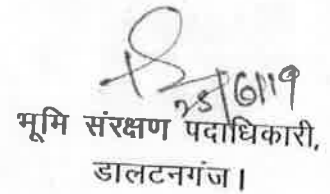 25/6/19
भूमि संरक्षण पदाधिकारी,
डालटनगंज।